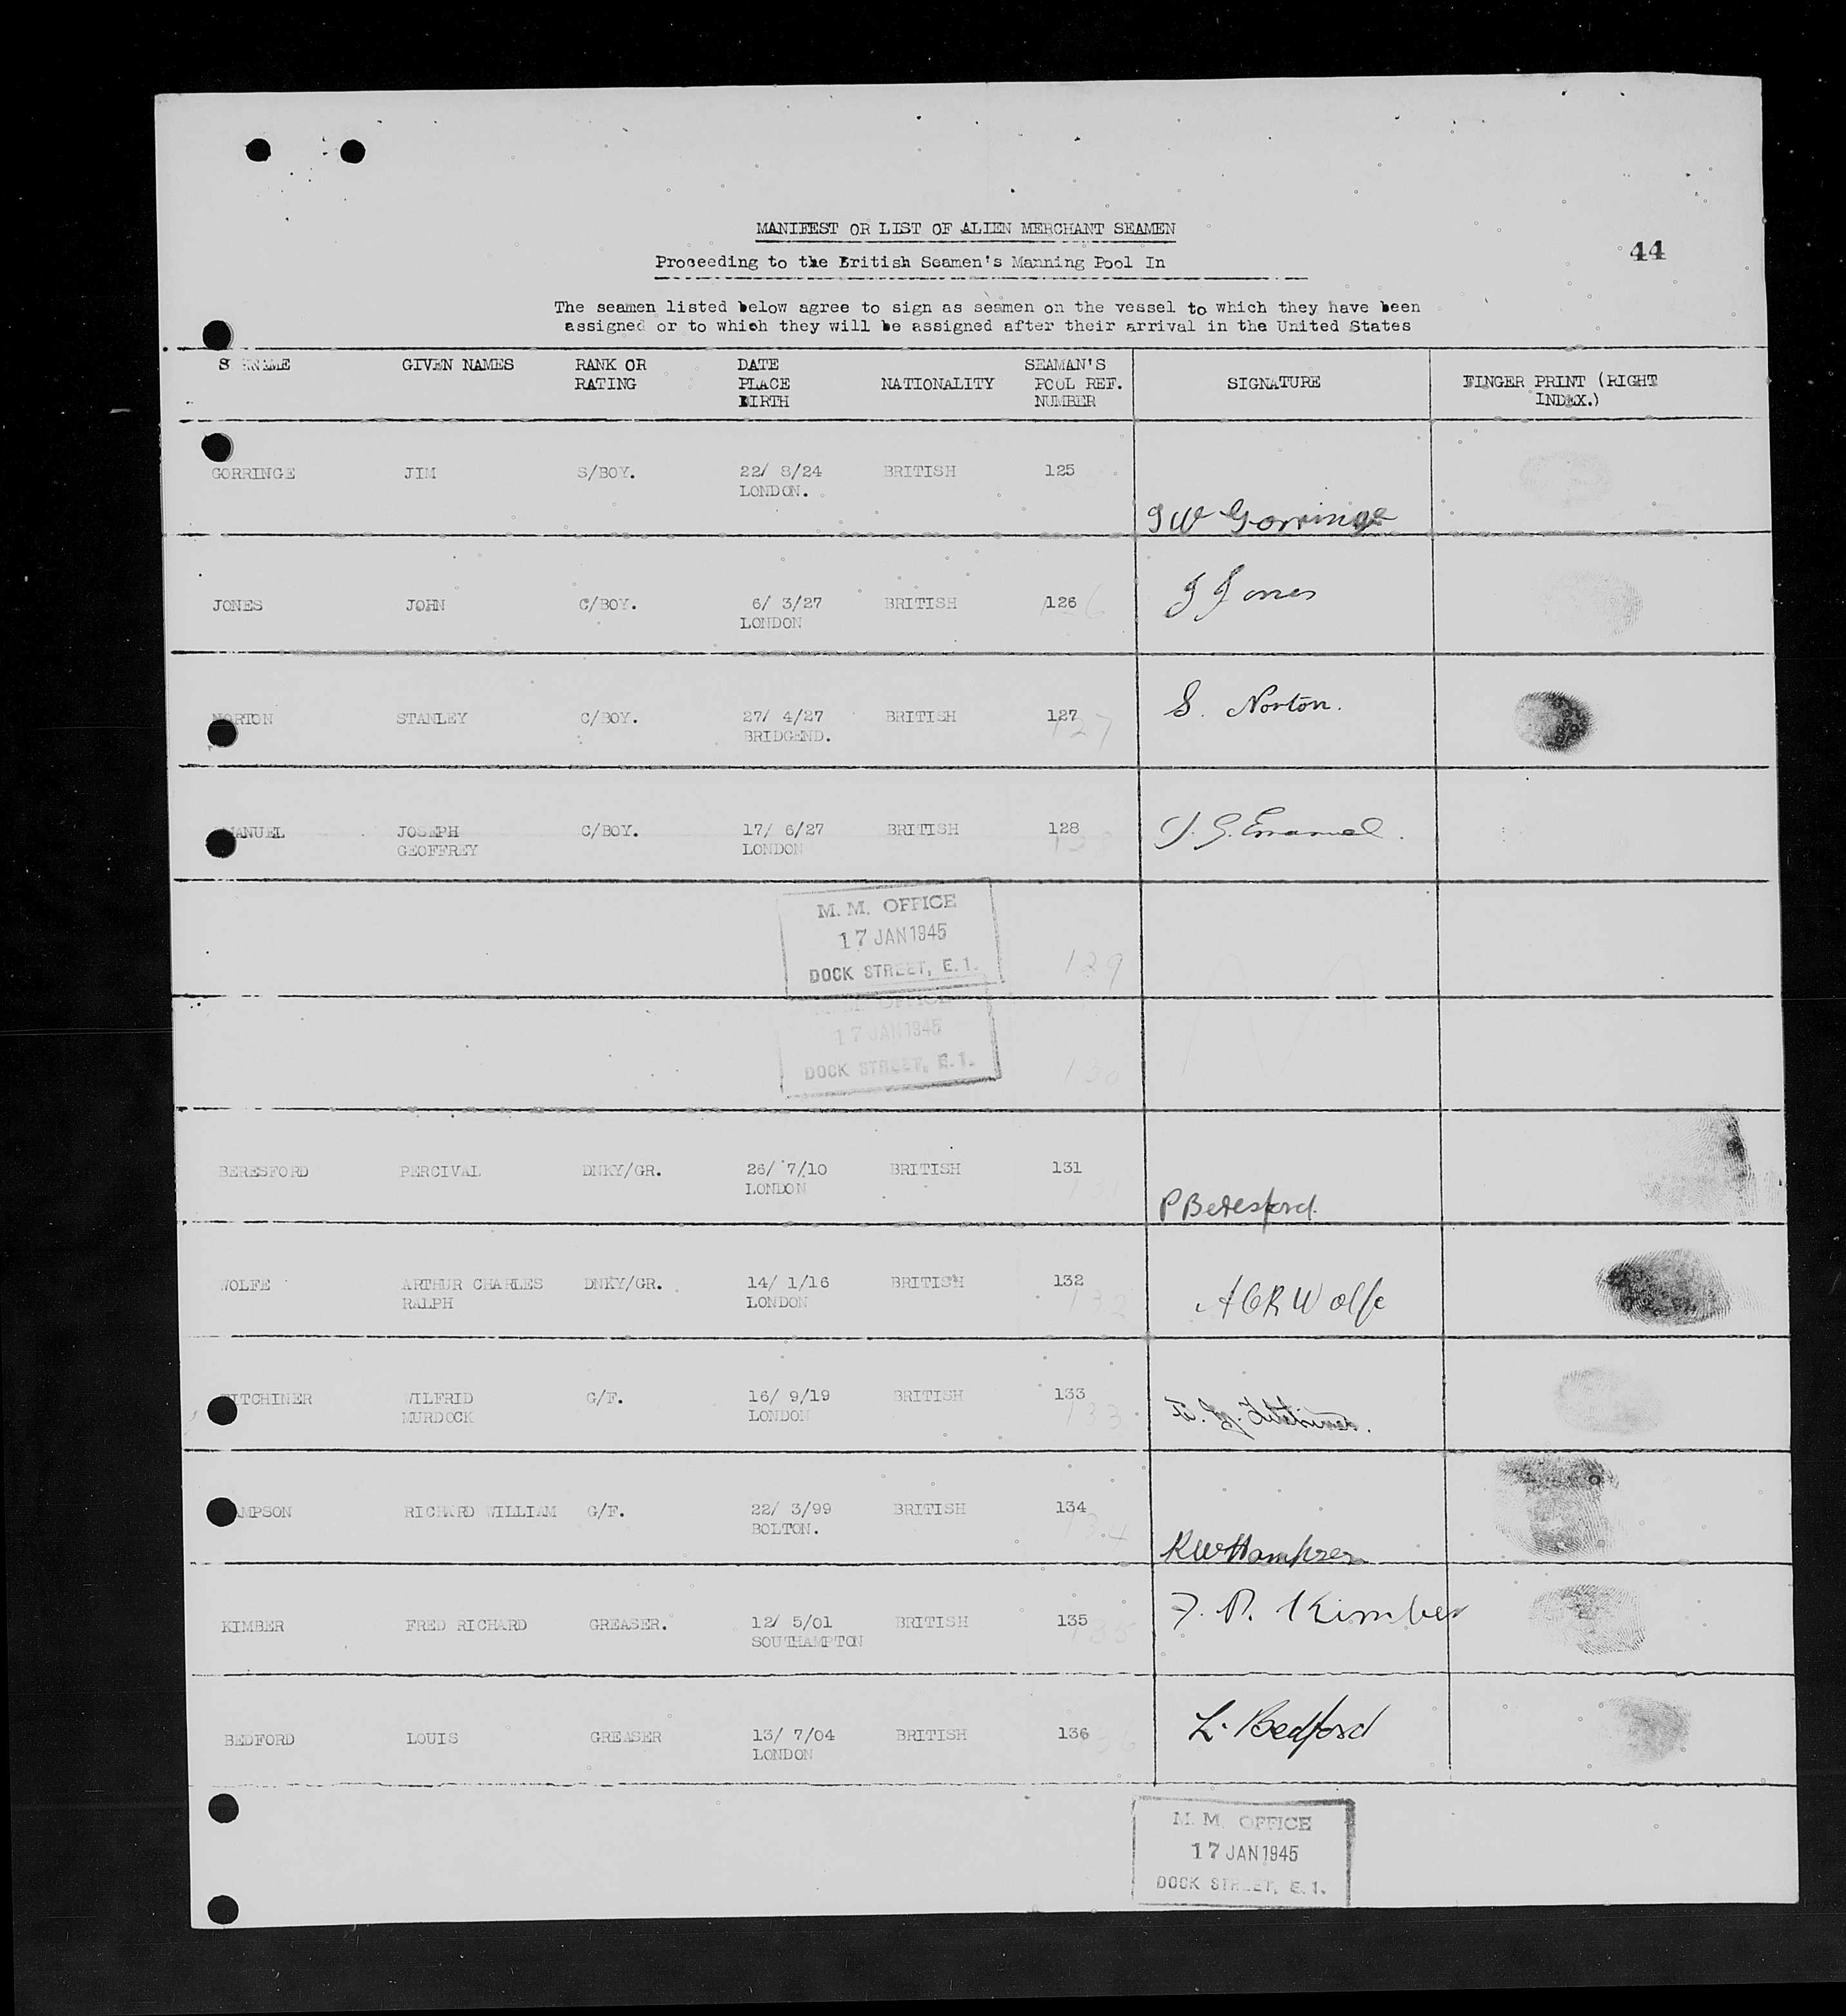 MANIFEST OR LIST OF ALIEN MERCHANT SEAMEN
44
Proceeding to the British Seamen's Manning Pool In
The seamen listed below agree to sign as seamen on the vessel to which they have been
assigned or to which they will be assigned after their arrival in the United States
SURNAME GIVEN NAMES RANK OR RATING DATE PLACE BIRTH NATIONALITY SEAMAN'S POOL REF. NUMBER SIGNATURE FINGER PRINT (RIGHT INDEX.)
GORRINGE JIM S/BOY. 22/ 8/24 BRITISH 125
LONDON.
J W Gorringe
JONES JOHN C/BOY. 6/ 3/27 BRITISH 126 6 J Jones
LONDON
NORTON STANLEY C/BOY. 27/ 4/27 BRITISH 127 S. Norton.
BRIDGEND. 127
MANUEL JOSEPH C/BOY. 17/ 6/27 BRITISH 128 J. G. Emanuel.
GEOFFREY LONDON
M. M. OFFICE
17 JAN 1945
DOCK STREET, E. 1.
129
M. M. OFFICE
17 JAN 1945
DOCK STREET, E. 1.
130
BERESFORD PERCIVAL DNKY/GR. 26/ 7/10 BRITISH 131
LONDON 131
P Beresford.
WOLFE ARTHUR CHARLES DNKY/GR. 14/ 1/16 BRITISH 132 A C R Wolfe
RALPH LONDON 132
ITCHINER WILFRID G/F. 16/ 9/19 BRITISH 133
MURDOCK LONDON 133
AMPSON RICHARD WILLIAM G/F. 22/ 3/99 BRITISH 134
BOLTON. 134
R W Hampson
KIMBER FRED RICHARD GREASER. 12/ 5/01 BRITISH 135 F. R. Kimber
SOUTHAMPTON 135
BEDFORD LOUIS GREASER 13/ 7/04 BRITISH 136 L. Bedford
LONDON
M. M. OFFICE
17 JAN 1945
DOCK STREET, E. 1.